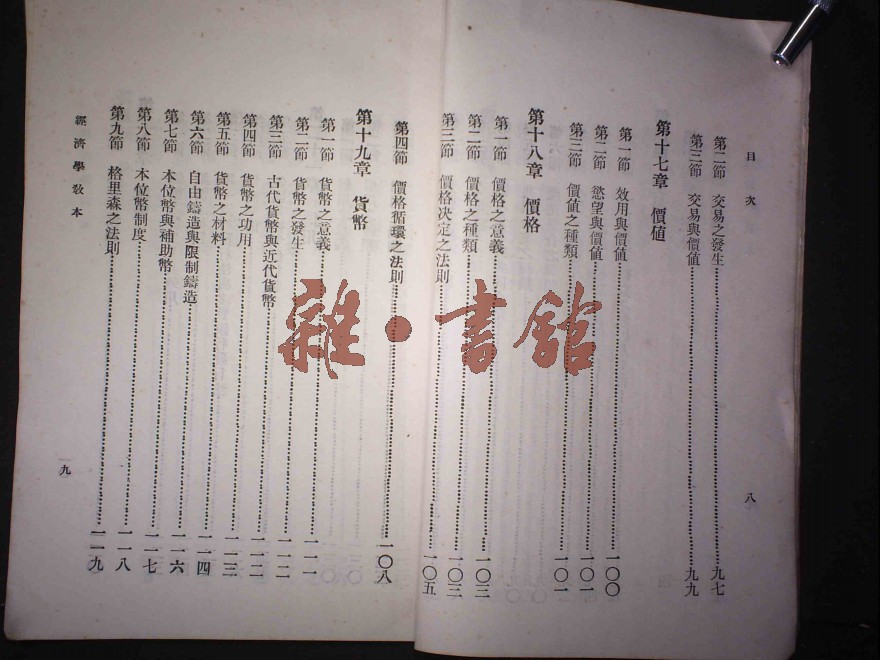 目次
八
第二節 交易之發生 九七
第三節 交易與價値 九九
第十七章 價値
第一節 效用與價値 一〇〇
第二節 慾望與價値 一〇一
第三節 價値之種類 一〇一
第十八章 價格
第一節 價格之意義 一〇三
第二節 價格之種類 一〇三
第三節 價格決定之法則 一〇五
第四節 價格循環之法則 一〇八
第十九章 貨幣
第一節 貨幣之意義 一一一
第二節 貨幣之發生 一一二
第三節 古代貨幣與近代貨幣
第四節 貨幣之功用 一一二
第五節 貨幣之材料 一一三
第六節 自由鑄造與限制鑄造 一一四
第七節 本位幣與補助幣 一一六
第八節 本位幣制度 一一七
第九節 格里森之法則 一一八
一一九
經濟學敎本
九
雜·書館